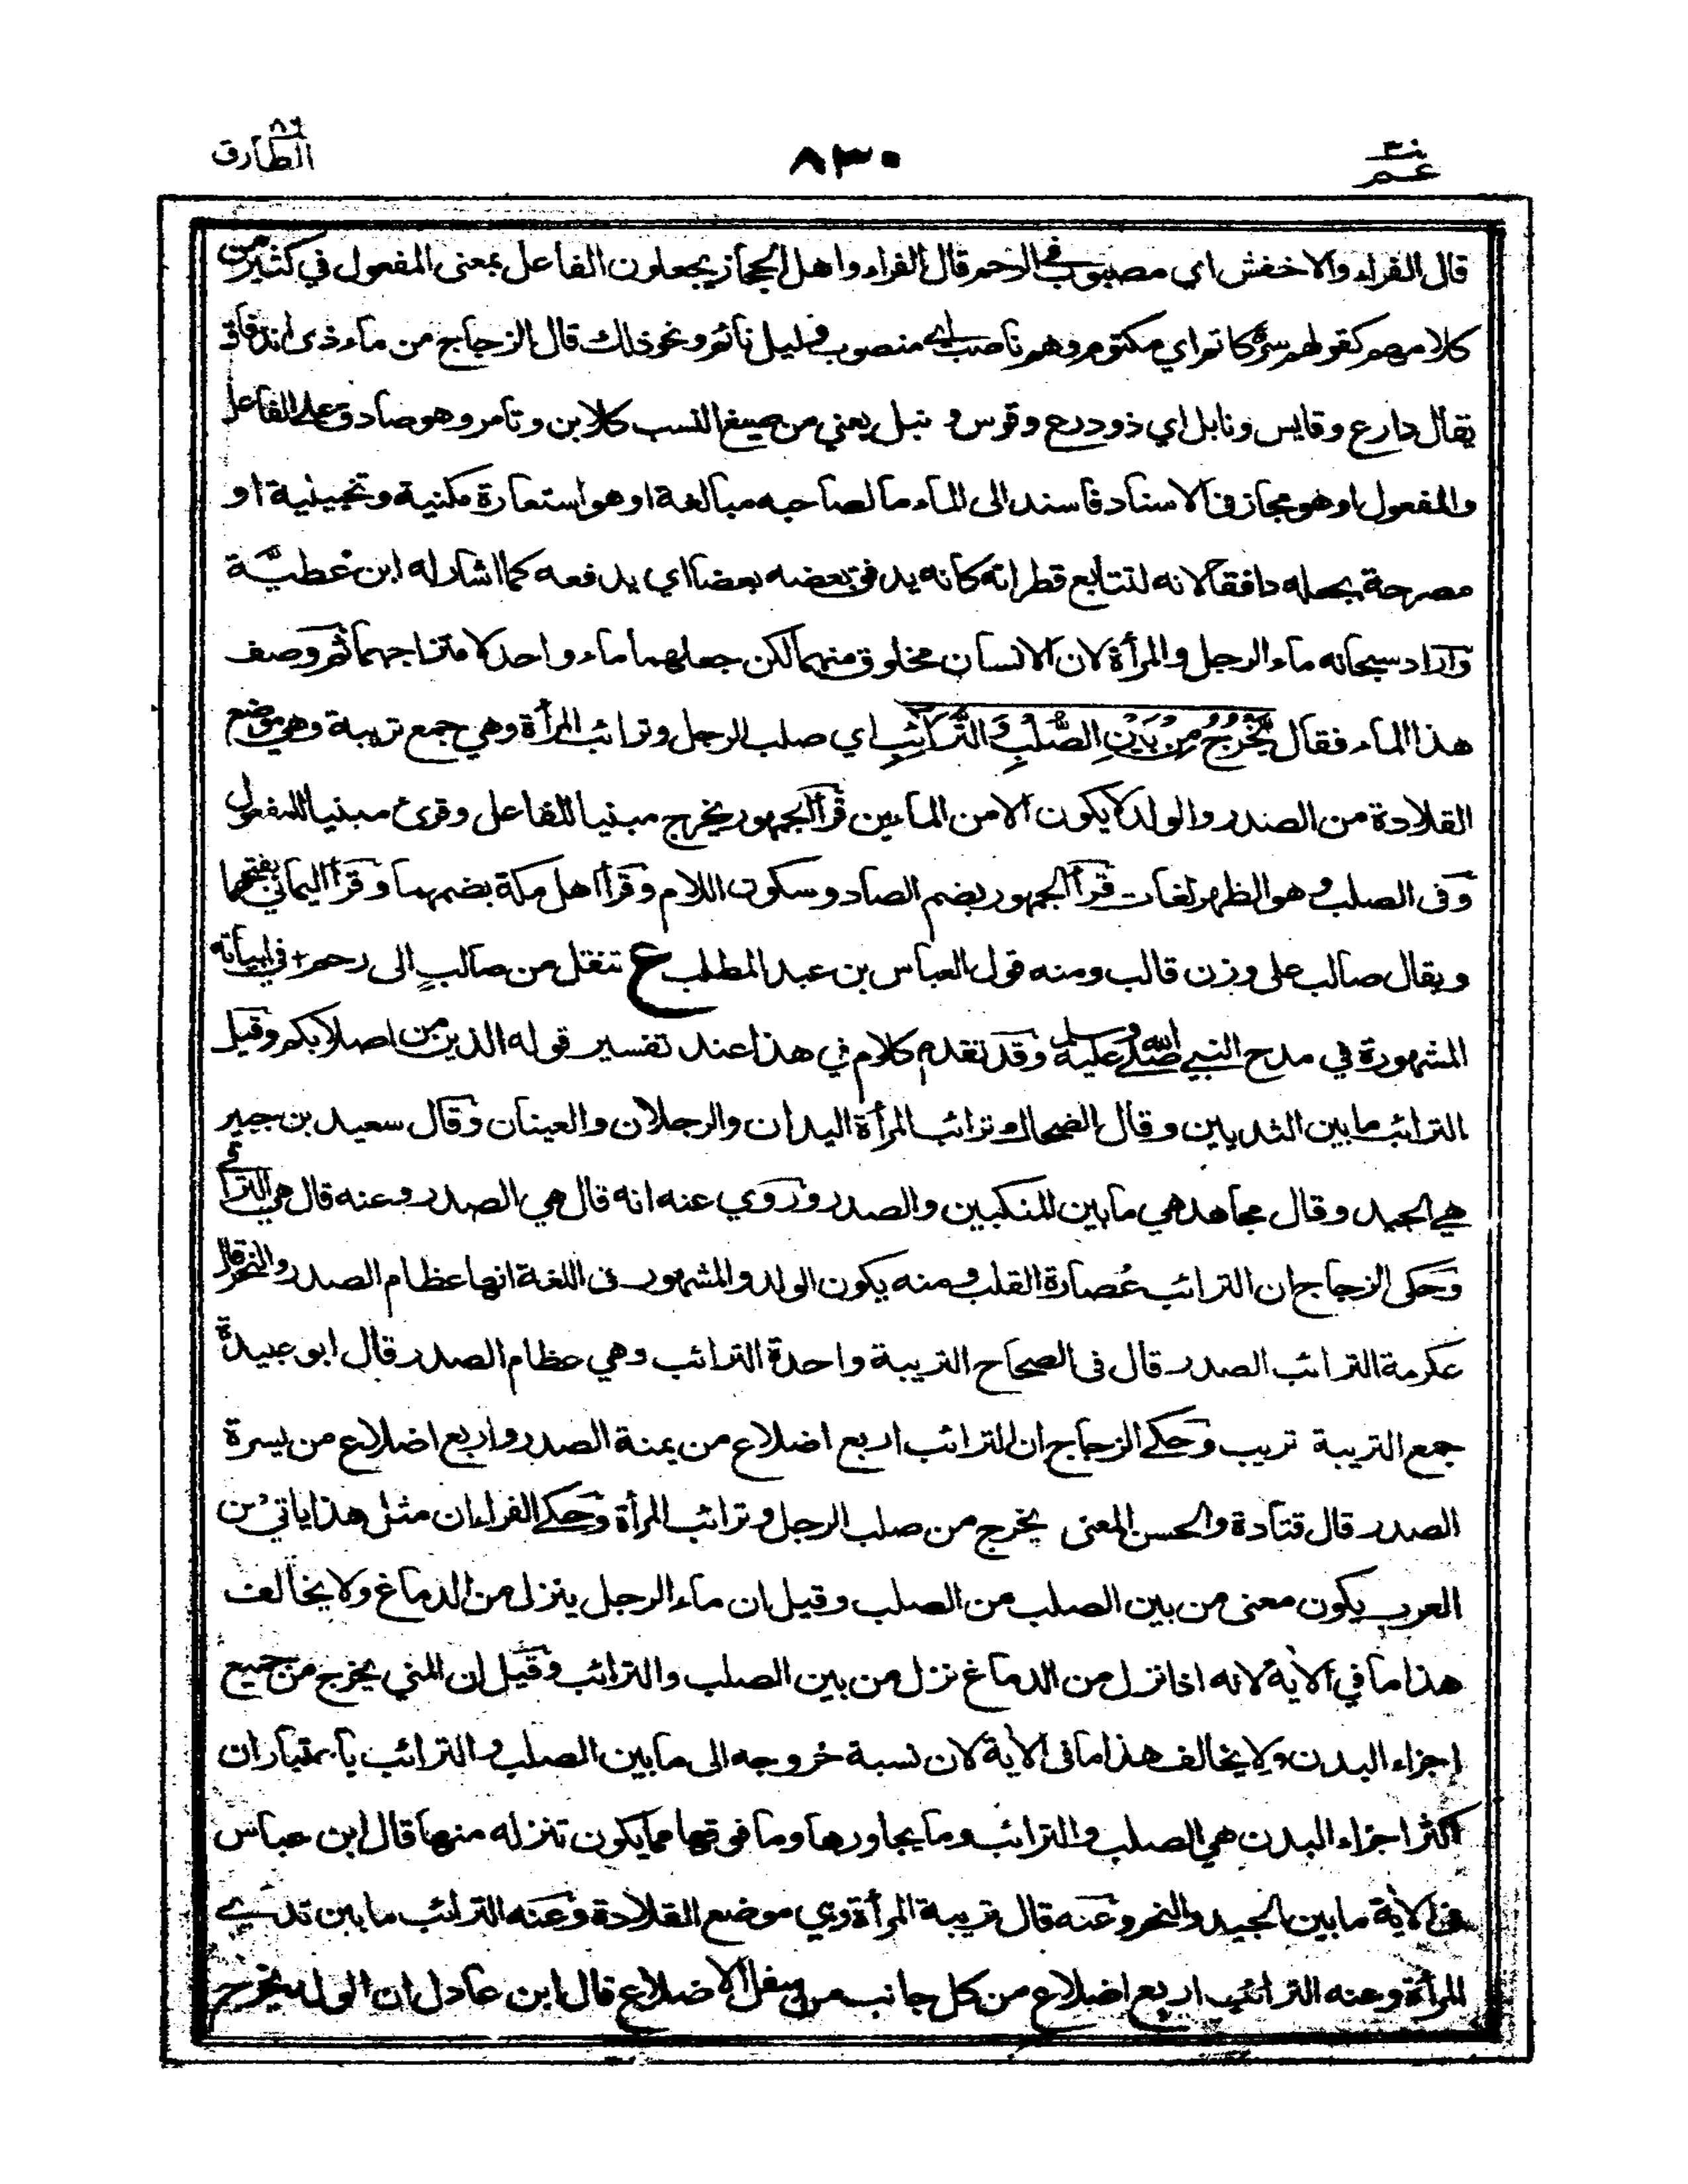 عم ٣٠
٨٣٠
الطارق ٨٦
قال الفراء والاخفش اي مصبوب في الرحم قال الفراء واهل الحجاز يجعلون الفاعل بمعنى المفعول في كثير من
كلامهم كقولهم سرّ كاتم اي مكتوم وهم ناصب اي منصوب وليل نائم ونحو ذلك قال الزجاج من ماء ذى اندفاق
يقال دارع وقايس ونابل اي ذو درع وقوس و نبل يعني من صيغ النسب كلابن وتامر وهو صادق على الفاعل
والمفعول او هو مجاز في الاسناد فاسند الى الماء ما لصاحبه مبالغة او هو استعارة مكنية وتخييلية او
مصرحة بجعله دافقا لانه لتتابع قطراته كانه يدفق بعضه بعضا اي يدفعه كما اشار له ابن عطيّة
وآراد سبحانه ماء الرجل والمرأة لان الانسان مخلوق منهما لكن جعلهما ماء واحد لامتزاجهما ثم وصف
هذا الماء فقال يَّخْرُجُ مِنْ بَيْنِ الصُّلْبِ وَالتَّرَآئِبِ اي صلب الرجل وترائب المرأة وهي جمع تريبة وهي موضع
القلادة من الصدر والولد لا يكون الا من المائين قرأ الجمهور يخرج مبنيا للفاعل وقرئ مبنيا للمفعول
وفى الصلب وهو الظهر لغات قرأ الجمهور بضم الصاد وسكون اللام وقرأ اهل مكة بضمهما وقرأ اليماني بفتحهما
ويقال صالب على وزن قالب ومنه قول العباس بن عبد المطلب ع تنقل من صالبٍ الى رحم + في ابياته
المشهورة في مدح النبي صلى الله عليه وسلم وقد تقدم كلام في هذا عند تفسير قوله الذين من اصلابكم وقيل
الترائب ما بين الثديين وقال الضحاك ترائب المرأة اليدان والرجلان والعينان وقال سعيد بن جبير
هي الجيد وقال مجاهد هي ما بين المنكبين والصدر وروي عنه انه قال هي الصدر وعنه قال هي التراقي
وحكى الزجاج ان الترائب عُصارة القلب ومنه يكون الولد والمشهور في اللغة انها عظام الصدر والنحر قال
عكرمة الترائب الصدر قال فى الصحاح التريبة واحدة الترائب وهي عظام الصدر قال ابو عبيدة
جمع التريبة تريب وحكى الزجاج ان الترائب اربع اضلاع من يمنة الصدر واربع اضلاع من يسرة
الصدر قال قتادة والحسن المعنى يخرج من صلب الرجل وترائب المرأة وحكى الفراء ان مثل هذا ياتي من
العرب يكون معنى من بين الصلب من الصلب وقيل ان ماء الرجل ينزل من الدماغ ولا يخالف
هذا ما في الاية لانه اذا نزل من الدماغ نزل من بين الصلب والترائب وقيل ان المني يخرج من جميع
اجزاء البدن ولا يخالف هذا ما في الاية لان نسبة خروجه الى ما بين الصلب والترائب باعتبار ان
اكثر اجزاء البدن هي الصلب والترائب وما يجاورها وما فوقها مما يكون تنزله منها قال ابن عباس
في الاية ما بين الجيد والنحر وعنه قال تريبة المرأة وهي موضع القلادة وعنه الترائب ما بين ثديي
المرأة وعنه الترائب اربع اضلاع من كل جانب من اسفل الاضلاع قال ابن عادل ان الولد يخرج